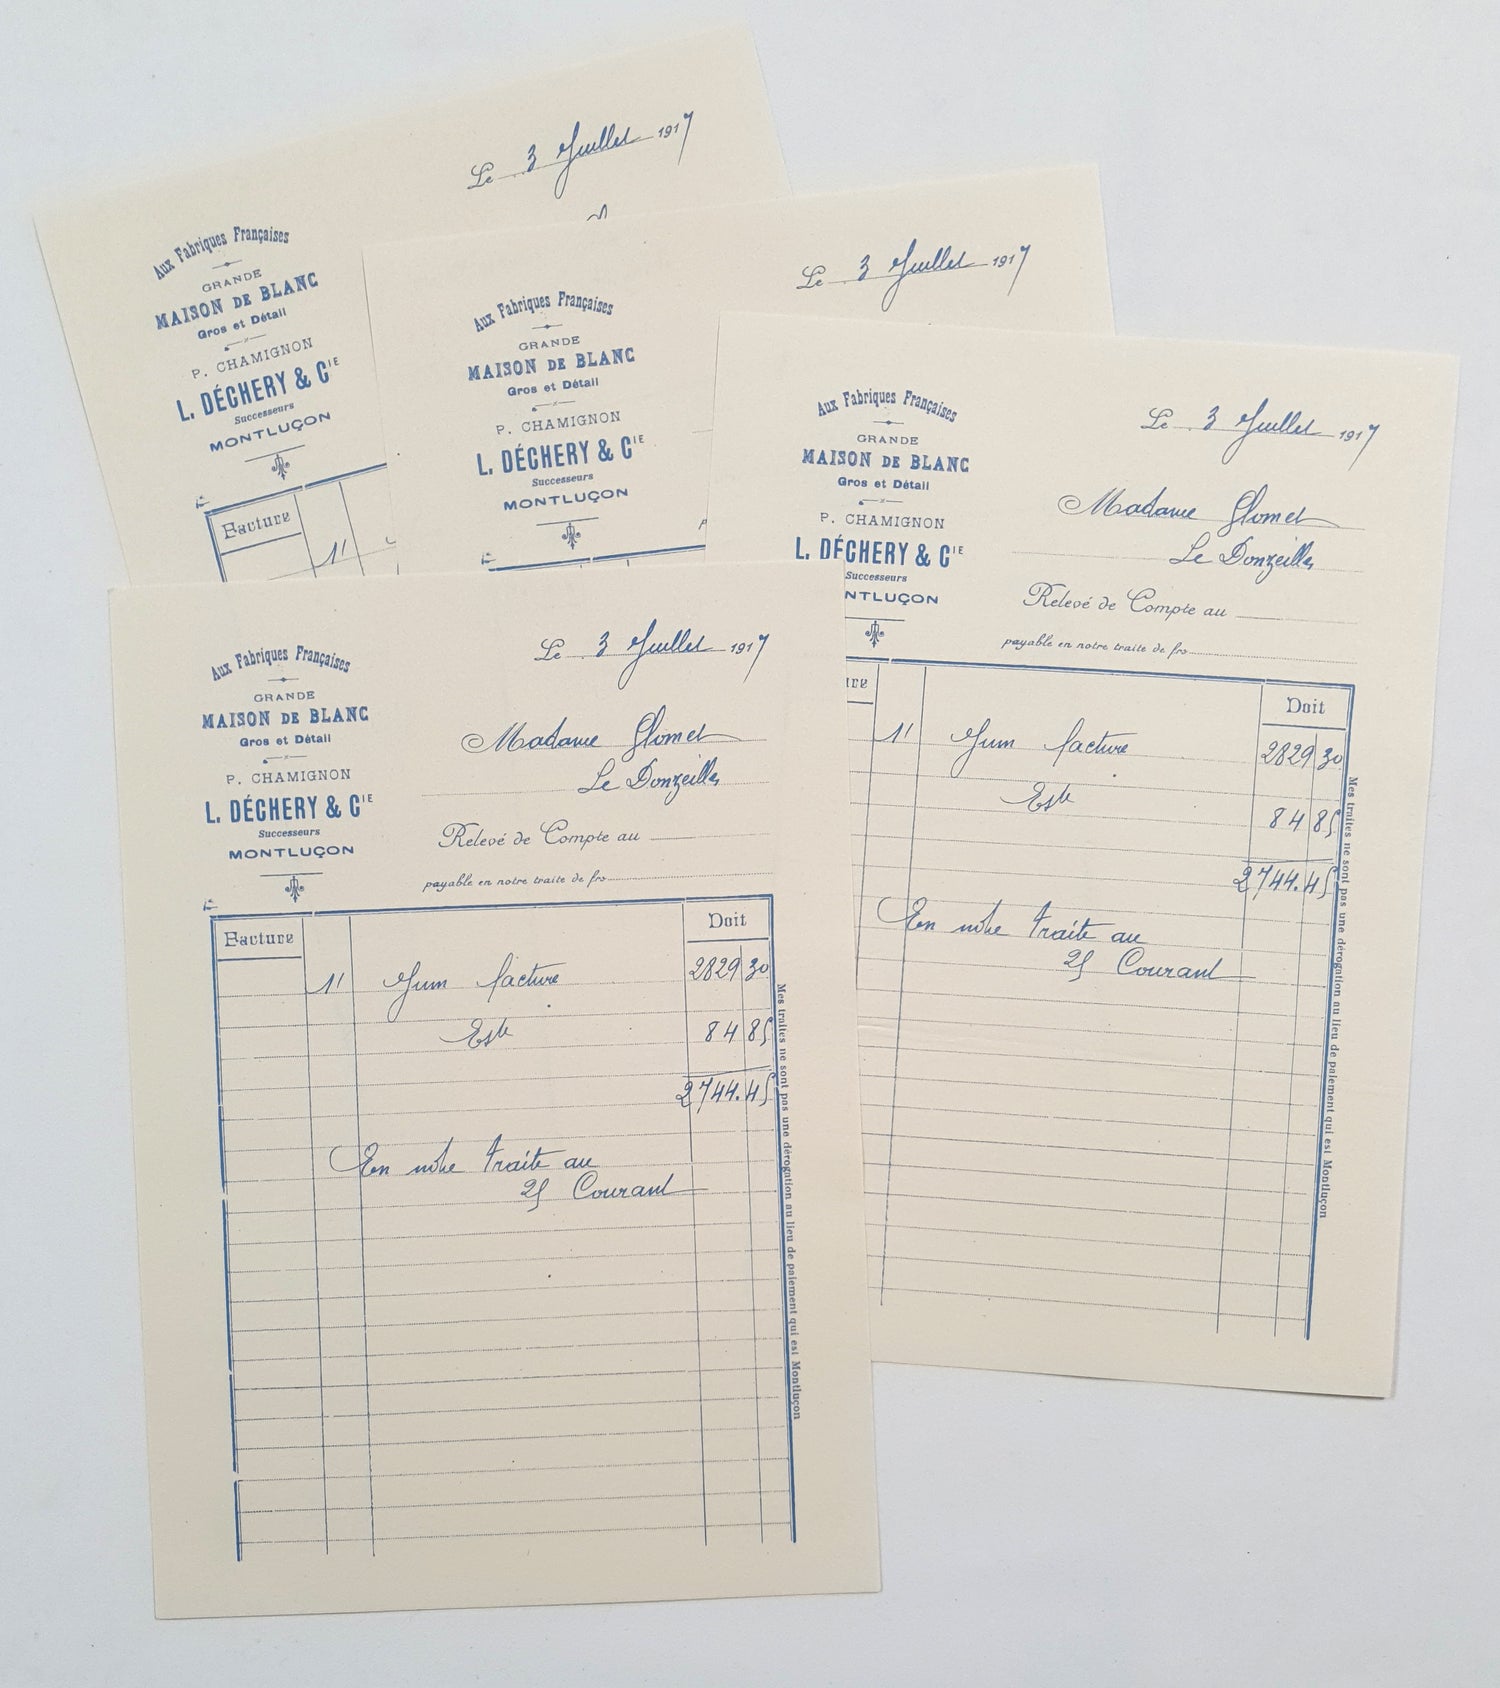 Le 3 Juillet 1917
Aux Fabriques Françaises
GRANDE
MAISON DE BLANC
Gros et Détail
P. CHAMIGNON
L. DÉCHERY & CIE
Successeurs
MONTLUÇON
Facture
11
Le 3 Juillet 1917
Aux Fabriques Françaises
GRANDE
MAISON DE BLANC
Gros et Détail
P. CHAMIGNON
L. DÉCHERY & CIE
Successeurs
MONTLUÇON
Le 3 Juillet 1917
Aux Fabriques Françaises
GRANDE
MAISON DE BLANC
Gros et Détail
P. CHAMIGNON
L. DÉCHERY & CIE
Successeurs
NTLUÇON
Madame Glomet
Le Donzeille
Relevé de Compte au
payable en notre traite de frs
ure
Doit
11 facture 2829 30
Este 84 85
2744.45
En notre traite au
25 Courant
Mes traites ne sont pas une dérogation au lieu de paiement qui est Montluçon
Le 3 Juillet 1917
Aux Fabriques Françaises
GRANDE
MAISON DE BLANC
Gros et Détail
P. CHAMIGNON
L. DÉCHERY & CIE
Successeurs
MONTLUÇON
Madame Glomet
Le Donzeille
Relevé de Compte au
payable en notre traite de frs
Facture
Doit
11 facture 2829 30
Este 84 85
2744.45
En notre traite au
25 Courant
Mes traites ne sont pas une dérogation au lieu de paiement qui est Montluçon